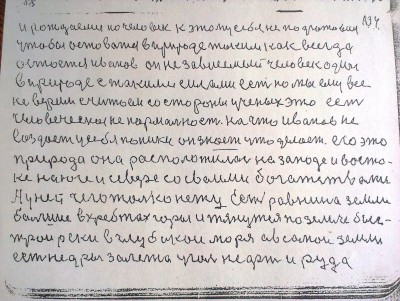 134
и рождаемый человек к этому себя не подготовил
чтобы оставатся в природе таким как всегда
остается иванов он не зависимый человек один
в природе с такими силами есть но мы ему все
не верим считаем со стороны ученых это есть
человеческая не нармалност. На што иванов не
создает у себя паники он знает что делает. его это
природа она расположилась на западе и восто-
ке на юге и севере со своими богатствами
А у ней чего только нежу Есть равнина земли
большие в хребтах горы и тянутся по земле быс-
трой реки в глубокой моря а в самой земли
есть недры залежа угля нефти и руда